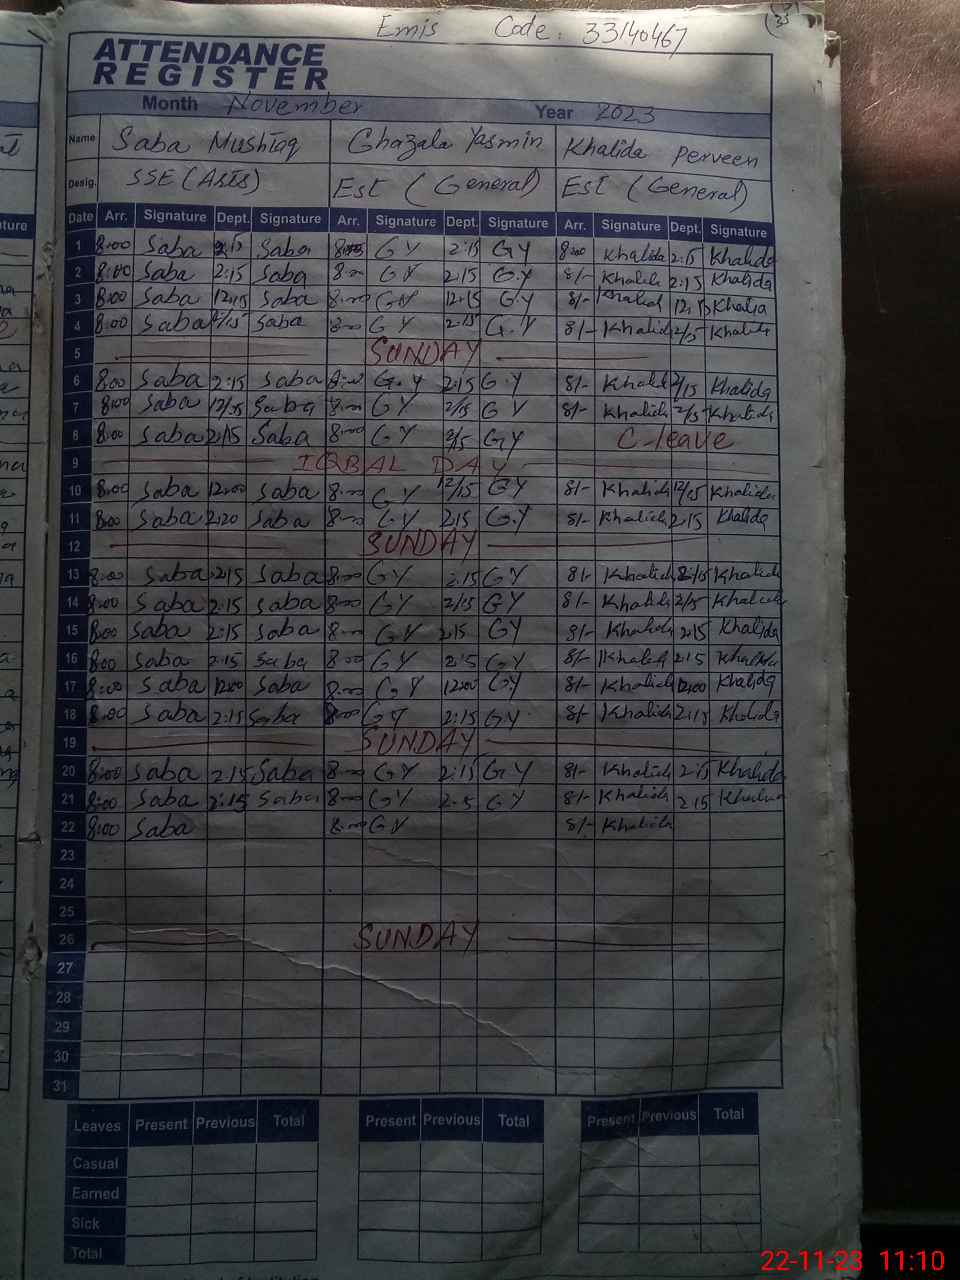 Emis Code: 33140467
ATTENDANCE
REGISTER
Month November Year 2023
Name Saba Mushtaq Ghazala Yasmin Khalida Perveen
Desig. SSE (Arts) Est (General) Est (General)
Date Arr. Signature Dept. Signature Arr. Signature Dept. Signature Arr. Signature Dept. Signature
1 8:00 Saba 2:15 Saba GY 2:15 GY 8:00 Khalida 2:15 Khalida
2 8:00 Saba 2:15 Saba 8:00 GY 2:15 G.Y 8/- Khalida 2:15 Khalida
3 8:00 Saba 12:15 Saba 8:00 GY 12:15 G.Y 8/- Khalid 12:15 Khalia
4 8:00 Saba 2/15 Saba 8:00 GY 2:15 G.Y 8/- Khalida 2/15 Khalida
5 SUNDAY
6 8:00 Saba 2:15 Saba 8:00 G.Y 2:15 G.Y 8/- Khalid 2/15 Khalida
7 8:00 Saba 12/15 Saba 8:00 GY 2/15 GY 8/- Khalida 2/15 Khalida
8 8:00 Saba 2:15 Saba 8:00 GY 2/15 GY C-leave
9 IQBAL DAY
10 8:00 Saba 12:00 Saba 8:00 GY 12/15 GY 8/- Khalida 12/15 Khalida
11 8:00 Saba 2:20 Saba 8:00 GY 2:15 G.Y 8/- Khalida 2:15 Khalida
12 SUNDAY
13 8:00 Saba 2:15 Saba 8:00 GY 2:15 GY 8/- Khalida 2/15 Khalida
14 8:00 Saba 2:15 Saba 8:00 GY 2/15 GY 8/- Khalida 2/15 Khalida
15 8:00 Saba 2:15 Saba 8:00 GY 2:15 GY 8/- Khalida 2:15 Khalida
16 8:00 Saba 2:15 Saba 8:00 GY 2:15 GY 8/- Khalid 2:15 Khalida
17 8:00 Saba 12:00 Saba 8:00 GY 12:00 G.Y 8/- Khalida 12:00 Khalida
18 8:00 Saba 2:15 Saba 8:00 GY 2:15 GY 8/- Khalida 2:15 Khalida
19 SUNDAY
20 8:00 Saba 2:15 Saba 8:00 GY 2:15 GY 8/- Khalida 2:15 Khalida
21 8:00 Saba 2:15 Saba 8:00 GY 2:15 GY 8/- Khalida 2:15 Khalida
22 8:00 Saba 8:00 GY 8/- Khalida
23
24
25
26 SUNDAY
27
28
29
30
31
Leaves Present Previous Total Present Previous Total Present Previous Total
Casual
Earned
Sick
Total
22-11-23 11:10